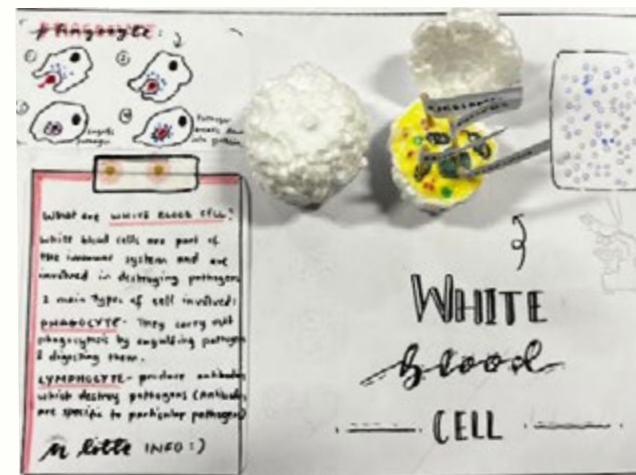 Phagocyte:
① ②
④
engulfs
pathogen
Pathogen
breaks down
into protein
What are WHITE BLOOD CELL?
White blood cells are part of
the immune system and are
involved in destroying pathogens
2 main types of cell involved:
PHAGOCYTE- They carry out
phagocytosis by engulfing pathogen
& digesting them.
LYMPHOCYTE- produce antibodies
which destroy pathogens (Antibodies
are specific to particular pathogen)
INFO :)
WHITE
blood
CELL